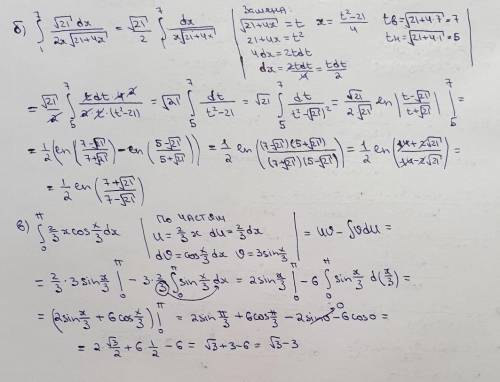 б) ∫₁⁷ √21 dx / (2x√(21+4x)) = √21/2 ∫₁⁷ dx / (x√(21+4x)) | Замена: √(21+4x) = t x = (t²-21)/4 tв = √(21+4·7) = 7
21+4x = t² tн = √(21+4·1) = 5
4dx = 2tdt
dx = 2tdt/4 = tdt/2
= √21/2 ∫₅⁷ tdt·4·2 / (2·t·(t²-21)) = √21 ∫₅⁷ dt/(t²-21) = √21 ∫₅⁷ dt/(t²-√21)² = √21/(2√21) ln |(t-√21)/(t+√21)| |₅⁷ =
= 1/2 (ln((7-√21)/(7+√21)) - ln((5-√21)/(5+√21))) = 1/2 ln((7-√21)(5+√21) / ((7+√21)(5-√21))) = 1/2 ln((14+2√21)/(14-2√21)) =
= 1/2 ln((7+√21)/(7-√21))
в) ∫₀^π 2/3 x cos x/3 dx | по частям
u = 2/3 x du = 2/3 dx
dv = cos x/3 dx v = 3 sin x/3 | = uv - ∫vdu =
= 2/3 · 3 sin x/3 |₀^π - 3 · 2/3 ∫₀^π sin x/3 dx = 2 sin x/3 |₀^π - 6 ∫₀^π sin x/3 d(x/3) =
= (2 sin x/3 + 6 cos x/3) |₀^π = 2 sin π/3 + 6 cos π/3 - 2 sin 0 - 6 cos 0 =
= 2 · √3/2 + 6 · 1/2 - 6 = √3 + 3 - 6 = √3 - 3